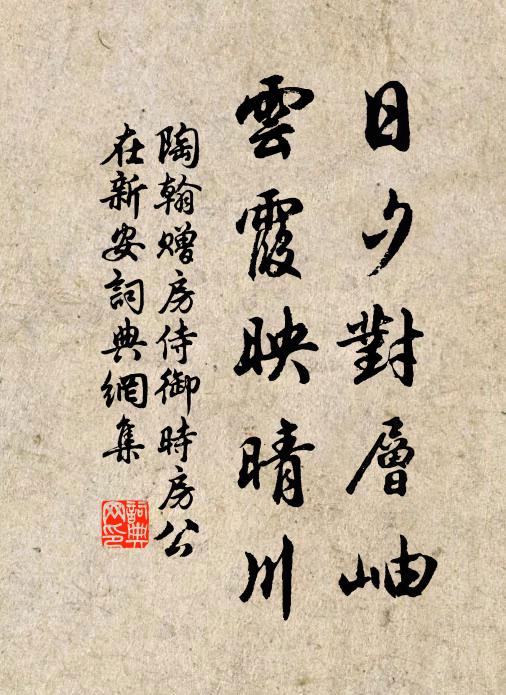 日夕對層岫
雲霞映晴川
陶翰贈房侍御時房公
在新安詞典網集
詞典
网印